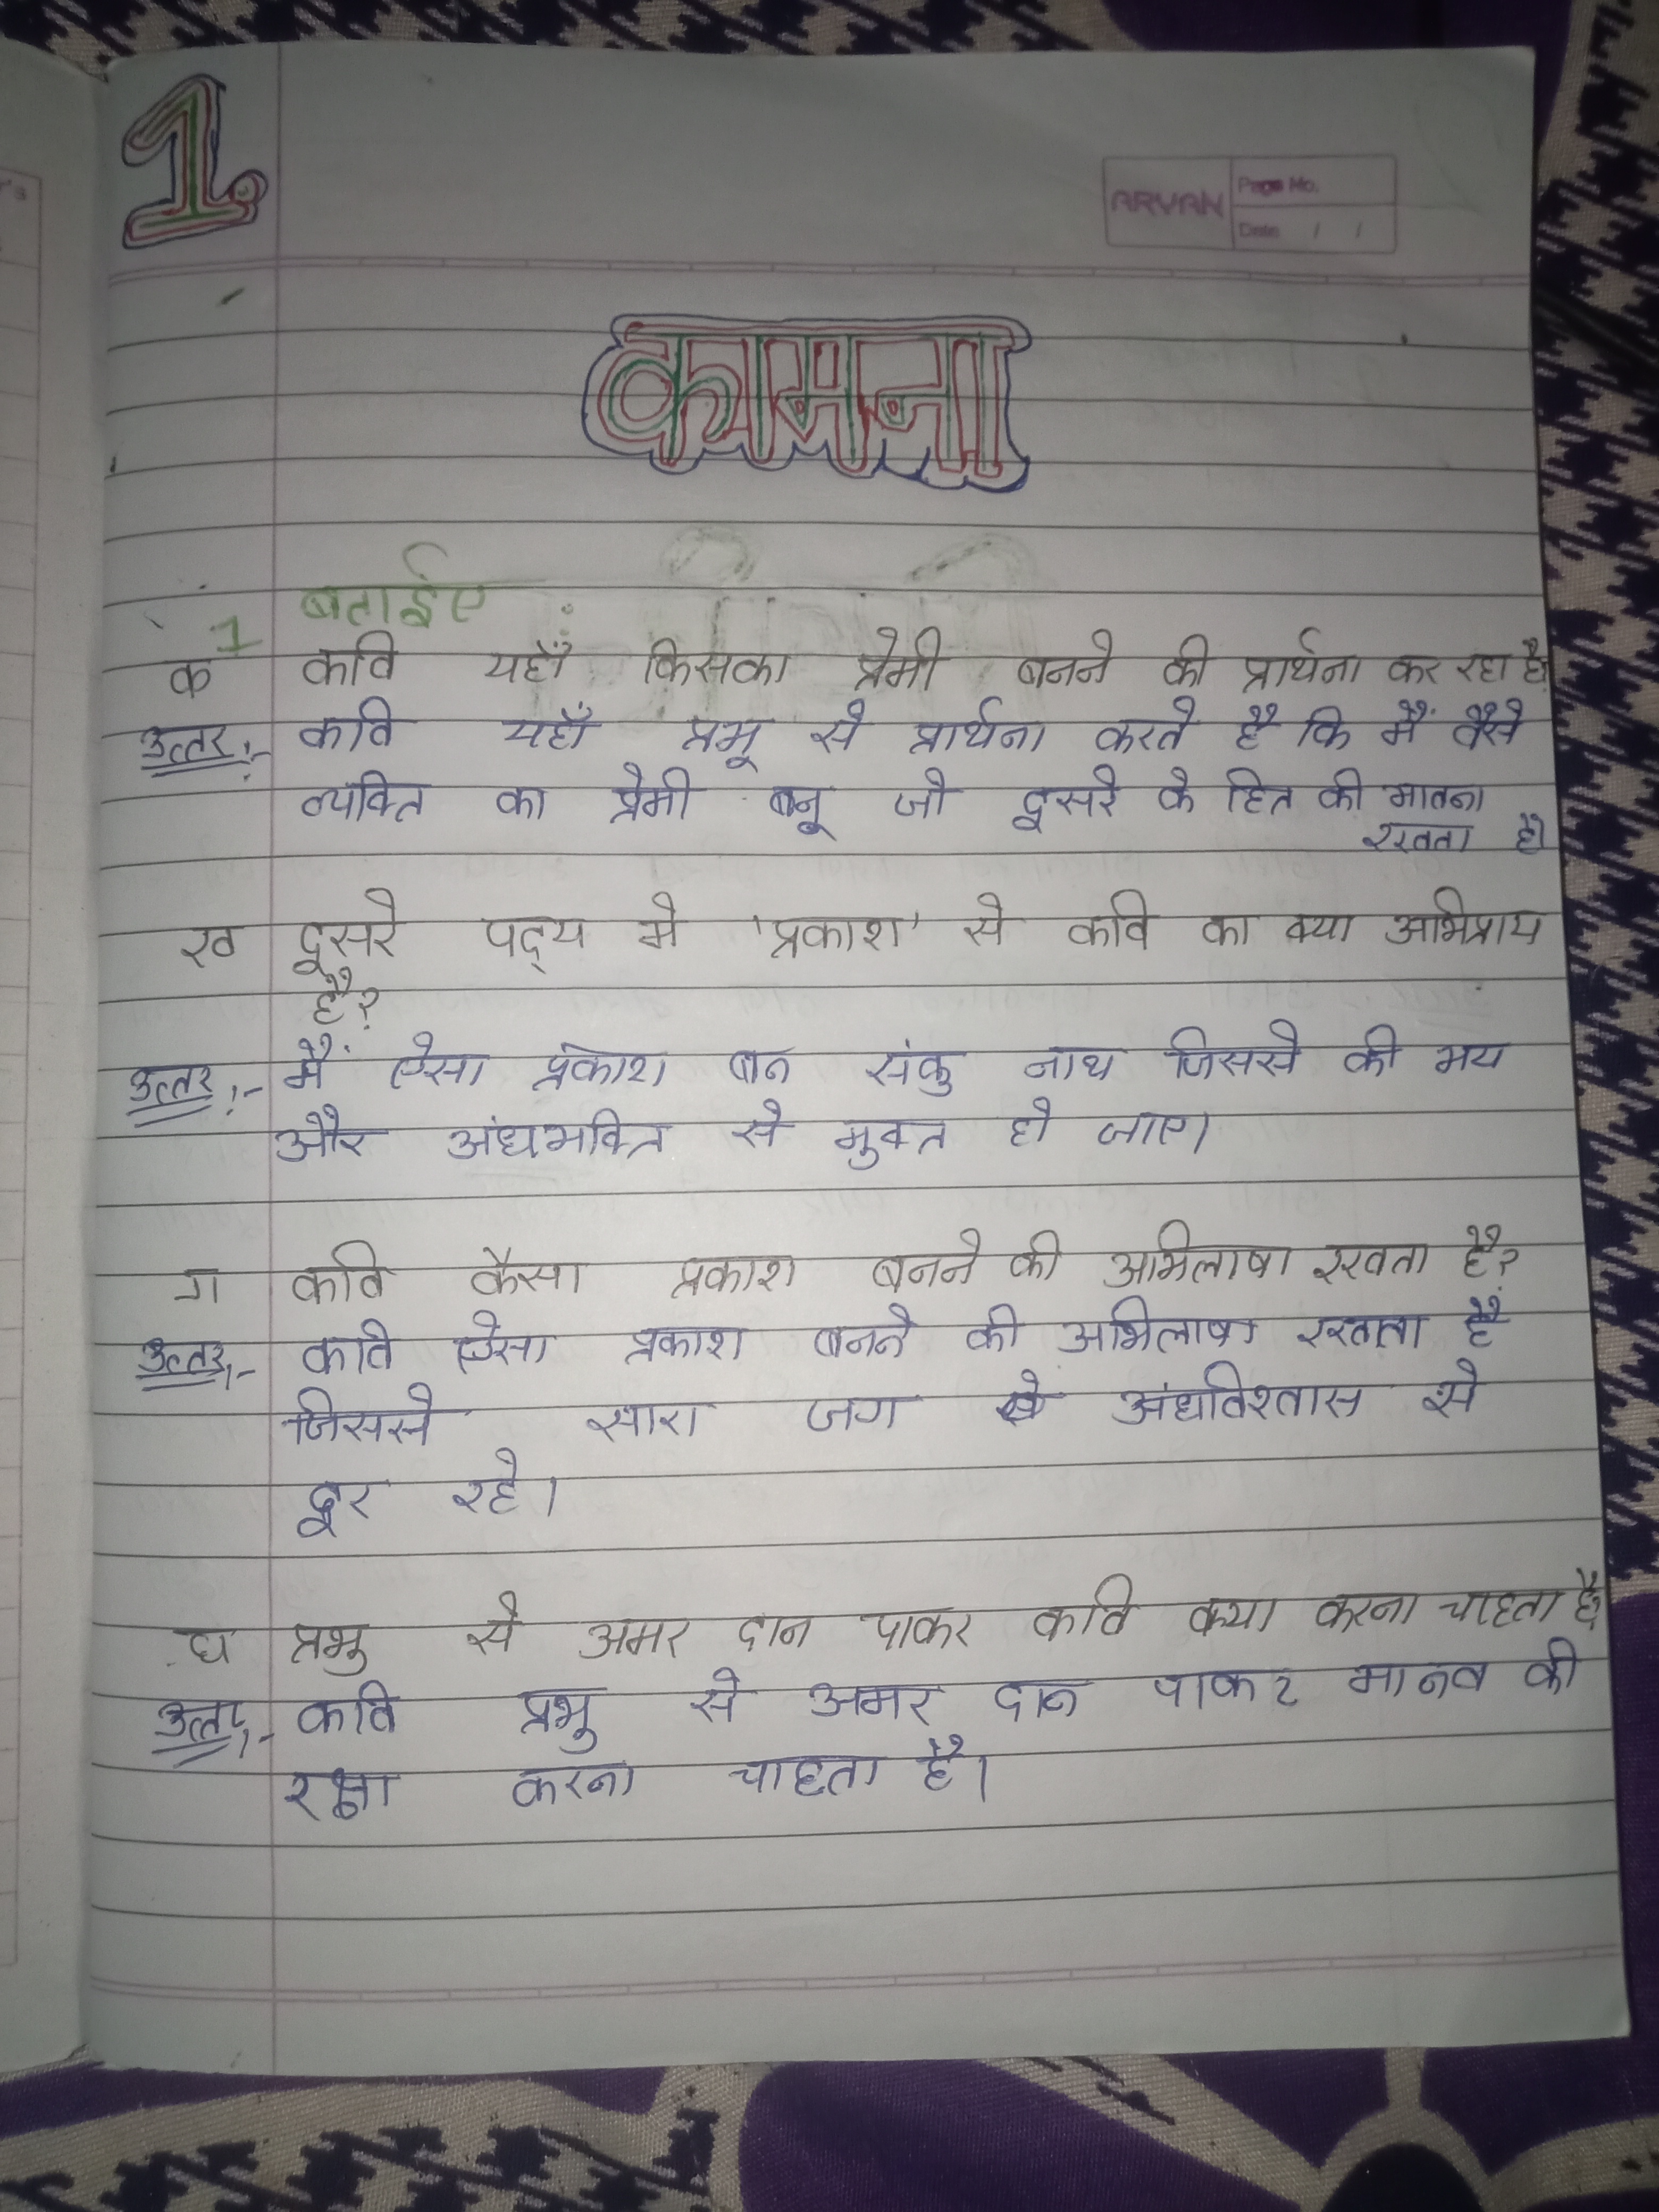 1.
ARYAN Page No.
Date / /
कामना
1 बताईए
क कवि यहाँ किसका प्रेमी बनने की प्रार्थना कर रहा है?
उत्तर:- कवि यहाँ प्रभू से प्रार्थना करते है कि मैं वैसे
व्यक्ति का प्रेमी बनू जो दूसरे के हित की भावना
रखता है।
ख दूसरे पद्य मे 'प्रकाश' से कवि का क्या अभिप्राय
है?
उत्तर:- मैं ऐसा प्रकाश बन संकु नाथ जिससे की भय
और अंधभक्ति से मुक्त हो जाए।
ग कवि कैसा प्रकाश बनने की अभिलाषा रखता है?
उत्तर:- कवि ऐसा प्रकाश बनने की अभिलाषा रखता है
जिससे सारा जग अंधविश्वास से
दूर रहे।
घ प्रभु से अमर दान पाकर कवि क्या करना चाहता है?
उत्तर:- कवि प्रभु से अमर दान पाकर मानव की
रक्षा करना चाहता है।